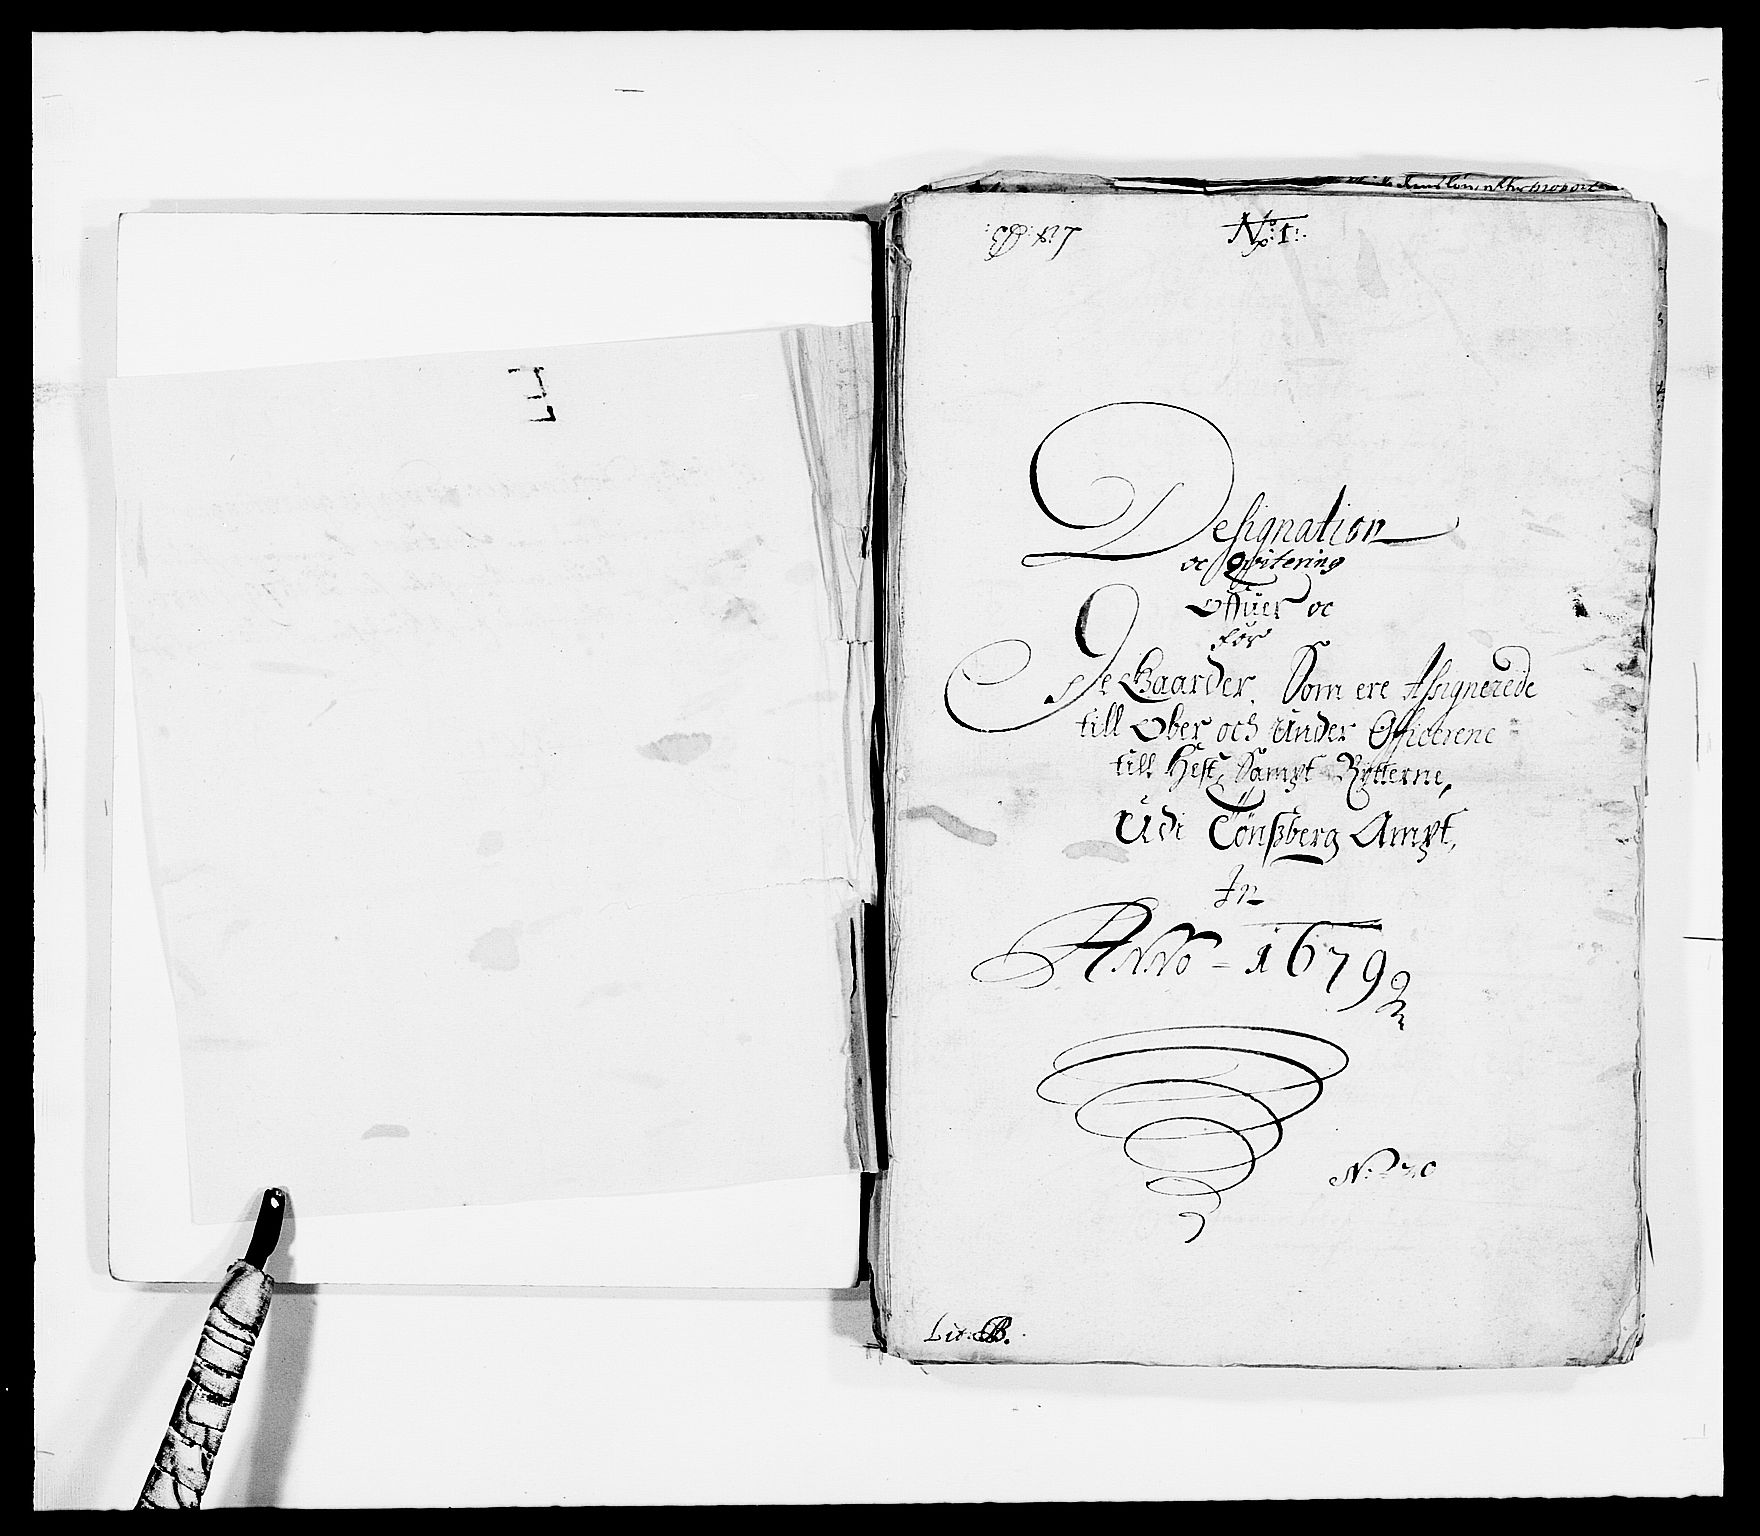 Lit: B:
No: 1:
Designation
oc Qvitering
Offuer oc
for
De Gaarder, Som ere Assignerede
till Ober och Under Officerene
till Hest, Sampt Rytterne,
Udi Tönßberg Ampt,
In
Anno = 1679
N:
Lit: B.